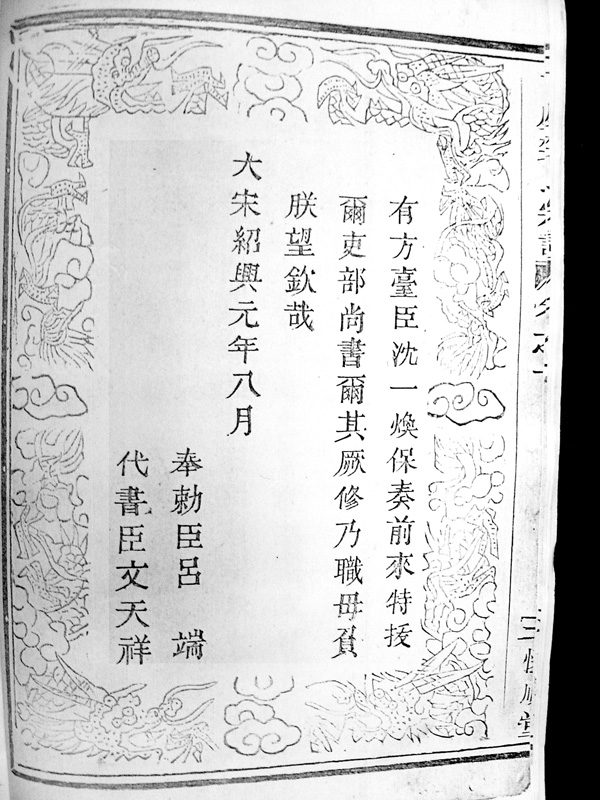 有方臺臣沈一煥保奏前來特授
爾吏部尚書爾其厥修乃職毋負
朕望欽哉
大宋紹興元年八月
奉勅臣呂端
代書臣文天祥